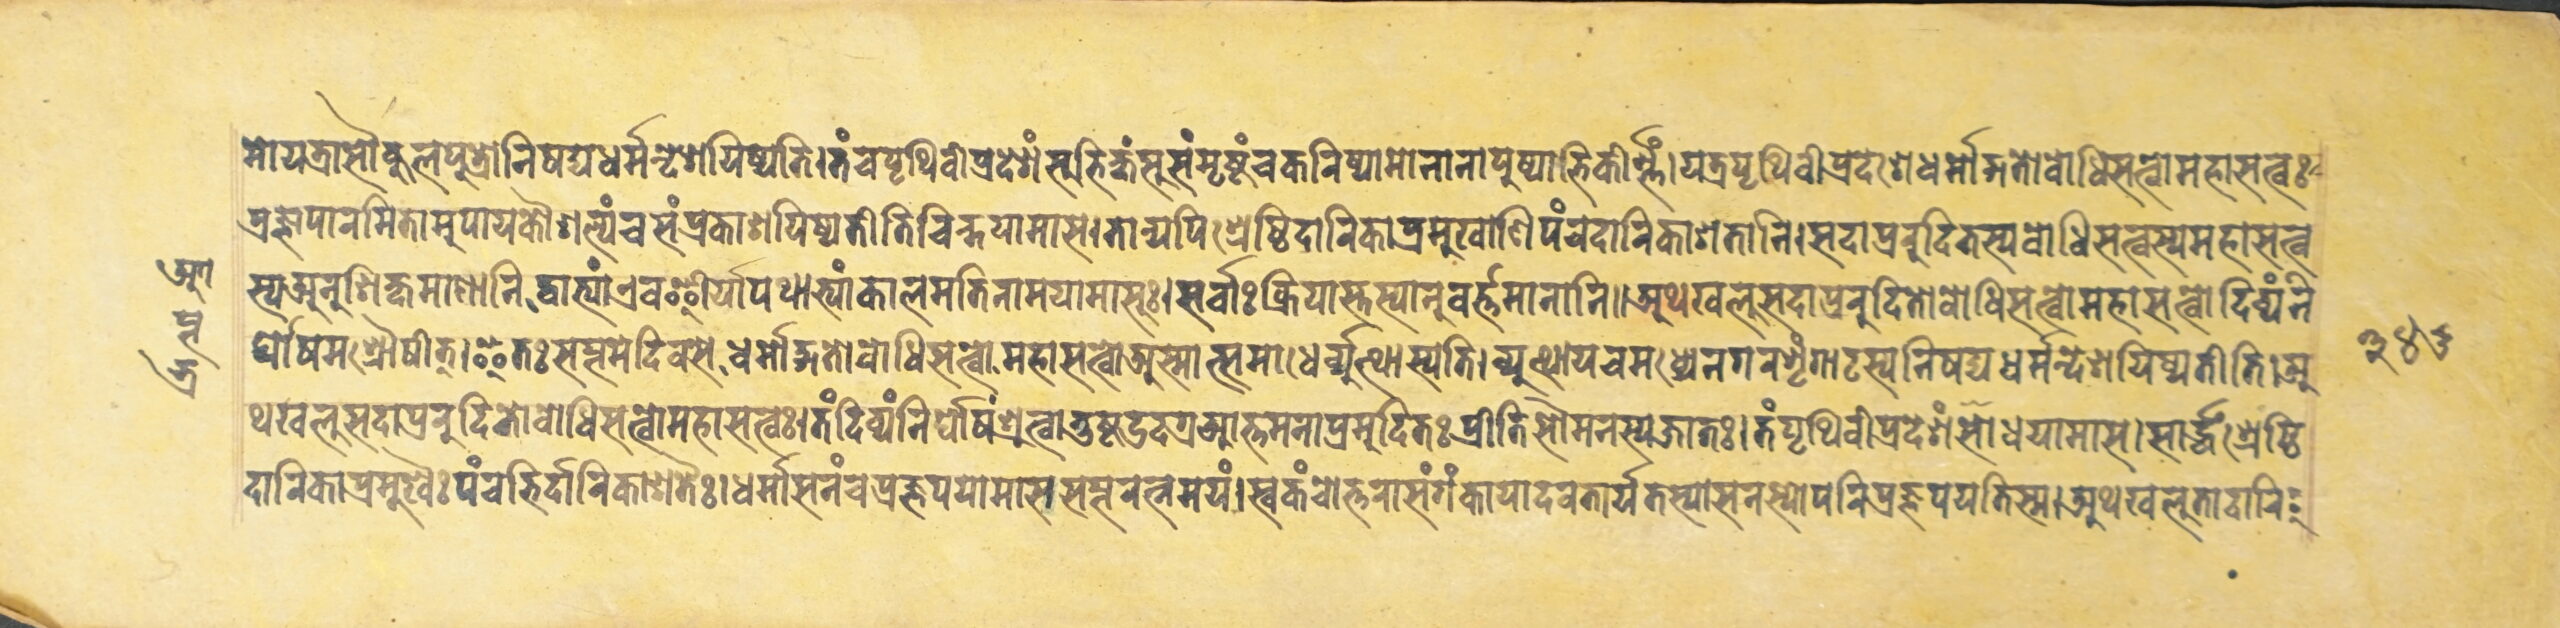 मोयत्रासौकुलपुत्रोनिषद्यधर्मन्देशयिष्यति।तंचपृथिवीप्रदेशंसुसिक्तंसुसंमृष्टंचकरिष्यामोनानापुष्पाभिकीर्णं।यत्रपृथिवीप्रदेशेधर्मोद्गतोबोधिसत्वोमहासत्वः
प्रज्ञापारमितामुपायकौशल्यंचसंप्रकाशयिष्यतीतिचिन्तयामास।तान्यपिश्रेष्ठिदारिकाप्रमुखाणिपंचदारिकाशतानि।सदाप्ररुदितस्यबोधिसत्वस्यमहासत्व
स्यअनुशिक्षमाणानिद्वाभ्यांएवईर्यापथाभ्यांकालमतिनामयामासुः।सर्वाःक्रियास्तस्यानुवर्त्तमानानि॥अथखलुसदाप्ररुदितोबोधिसत्वोमहासत्वोदिव्यंनि
र्घोषमश्रौषीत्।इतःसप्तमेदिवसेधर्मोद्गतोबोधिसत्वोमहासत्वोअस्मात्समाधेर्व्युत्थास्यति।व्युत्थायचमध्येनगरशृंगाटस्यनिषद्यधर्मन्देशयिष्यतीति।अ
थखलुसदाप्ररुदितोबोधिसत्वोमहासत्वः।तंदिव्यंनिर्घोषंश्रुत्वातुष्टउदग्रआत्तमनाप्रमुदितःप्रीतिसौमनस्यजातः।तंपृथिवीप्रदेशंसोधयामास।सार्द्धंश्रेष्ठि
दारिकाप्रमुखैःपंचभिर्दारिकाशतैः।धर्मासनंचप्रज्ञपयामाससप्तरत्नमयं।स्वकंचोत्तरासंगंकायादवतार्यतस्यासनस्योपरिप्रज्ञपयतिस्म।अथखलुतादारि